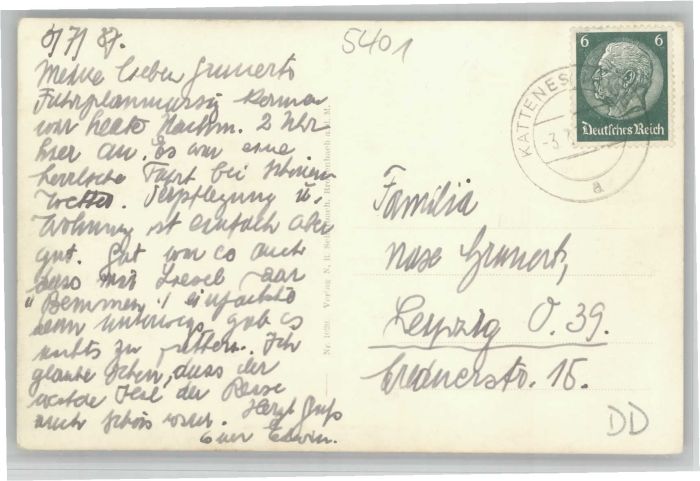 3/7/37.
Meine lieben Grunerts
Fahrplanmässig kamen
wir heute Nachm. 2 Uhr
hier an. Es war eine
herrliche Fahrt bei schönem
Wetter. Verpflegung u.
Wohnung ist einfach aber
gut. Gut war es auch
dass mir Liesel paar
"Bemmen" einpackte
denn unterwegs gab es
nichts zu futtern. Ich
glaube schon, dass der
Teil der Reise
auch schön wird. Herzl Gruß
Euer Edwin.
5401
6 6
Deutsches Reich
KATTENES
-3.7
a
Familie
Grunert,
Leipzig O. 39.
Crednerstr. 15.
DD
Nr. 1029. Verlag N. B.